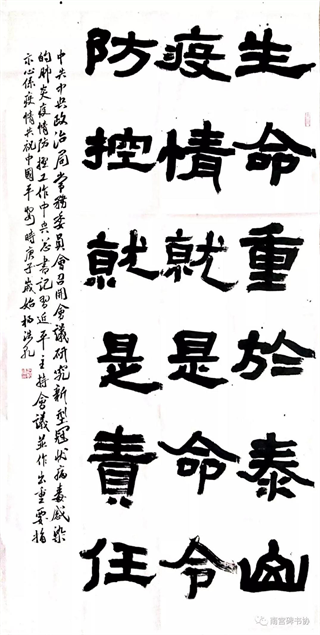 生命重於泰山
疫情就是命令
防控就是責任
中共中央政治局常務委員會召開會議研究新型冠狀病毒感染
的肺炎疫情防控工作中共总書記習近平主持會議並作出重要指
示心係疫情共祝中國平安時庚子歲始
南宫碑书协